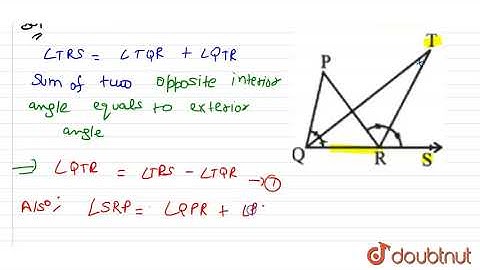 ∠TRS = ∠TQR + ∠QTR
Sum of two opposite interior
angle equals to exterior
angle
⇒ ∠QTR = ∠TRS - ∠TQR →①
Also; ∠SRP = ∠QPR +
T
P
Q
R
S
doubtnut